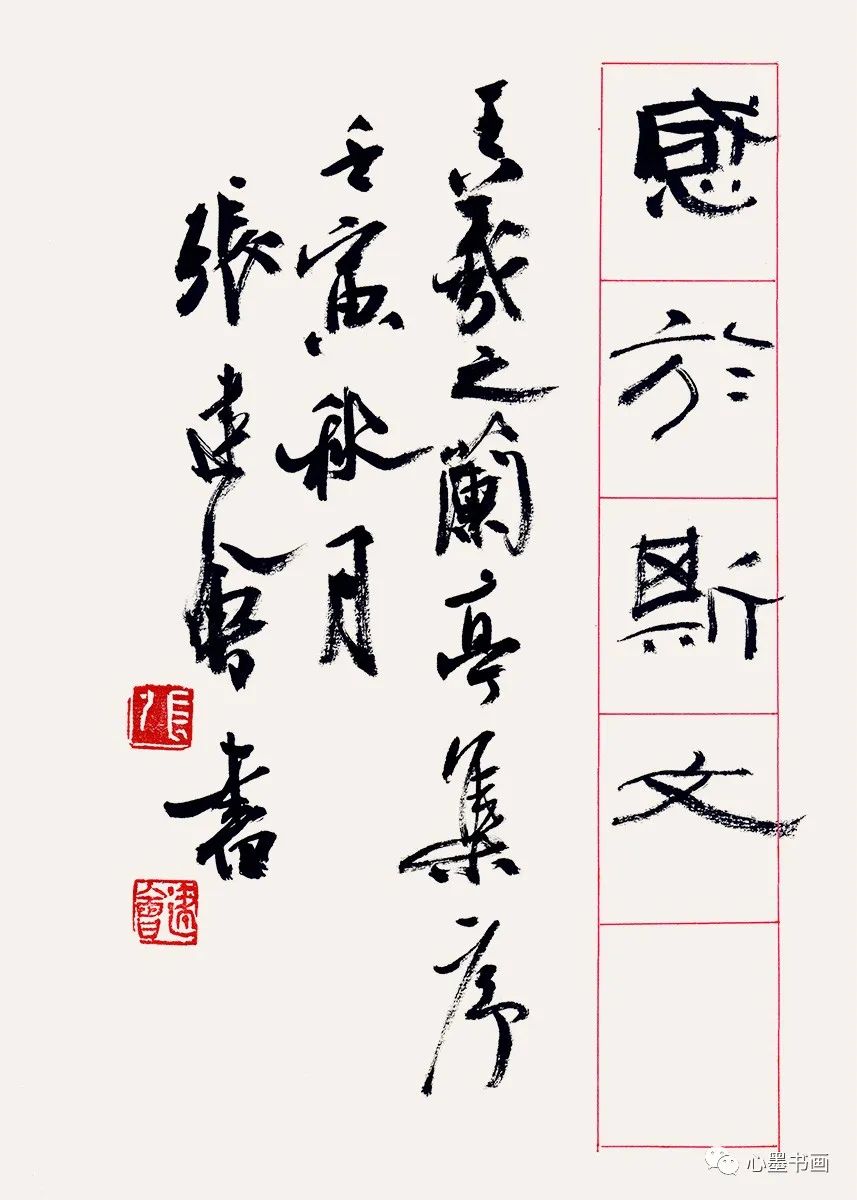 感於斯文
王羲之蘭亭集序
壬寅秋月
張建會書
張
建會
心墨书画